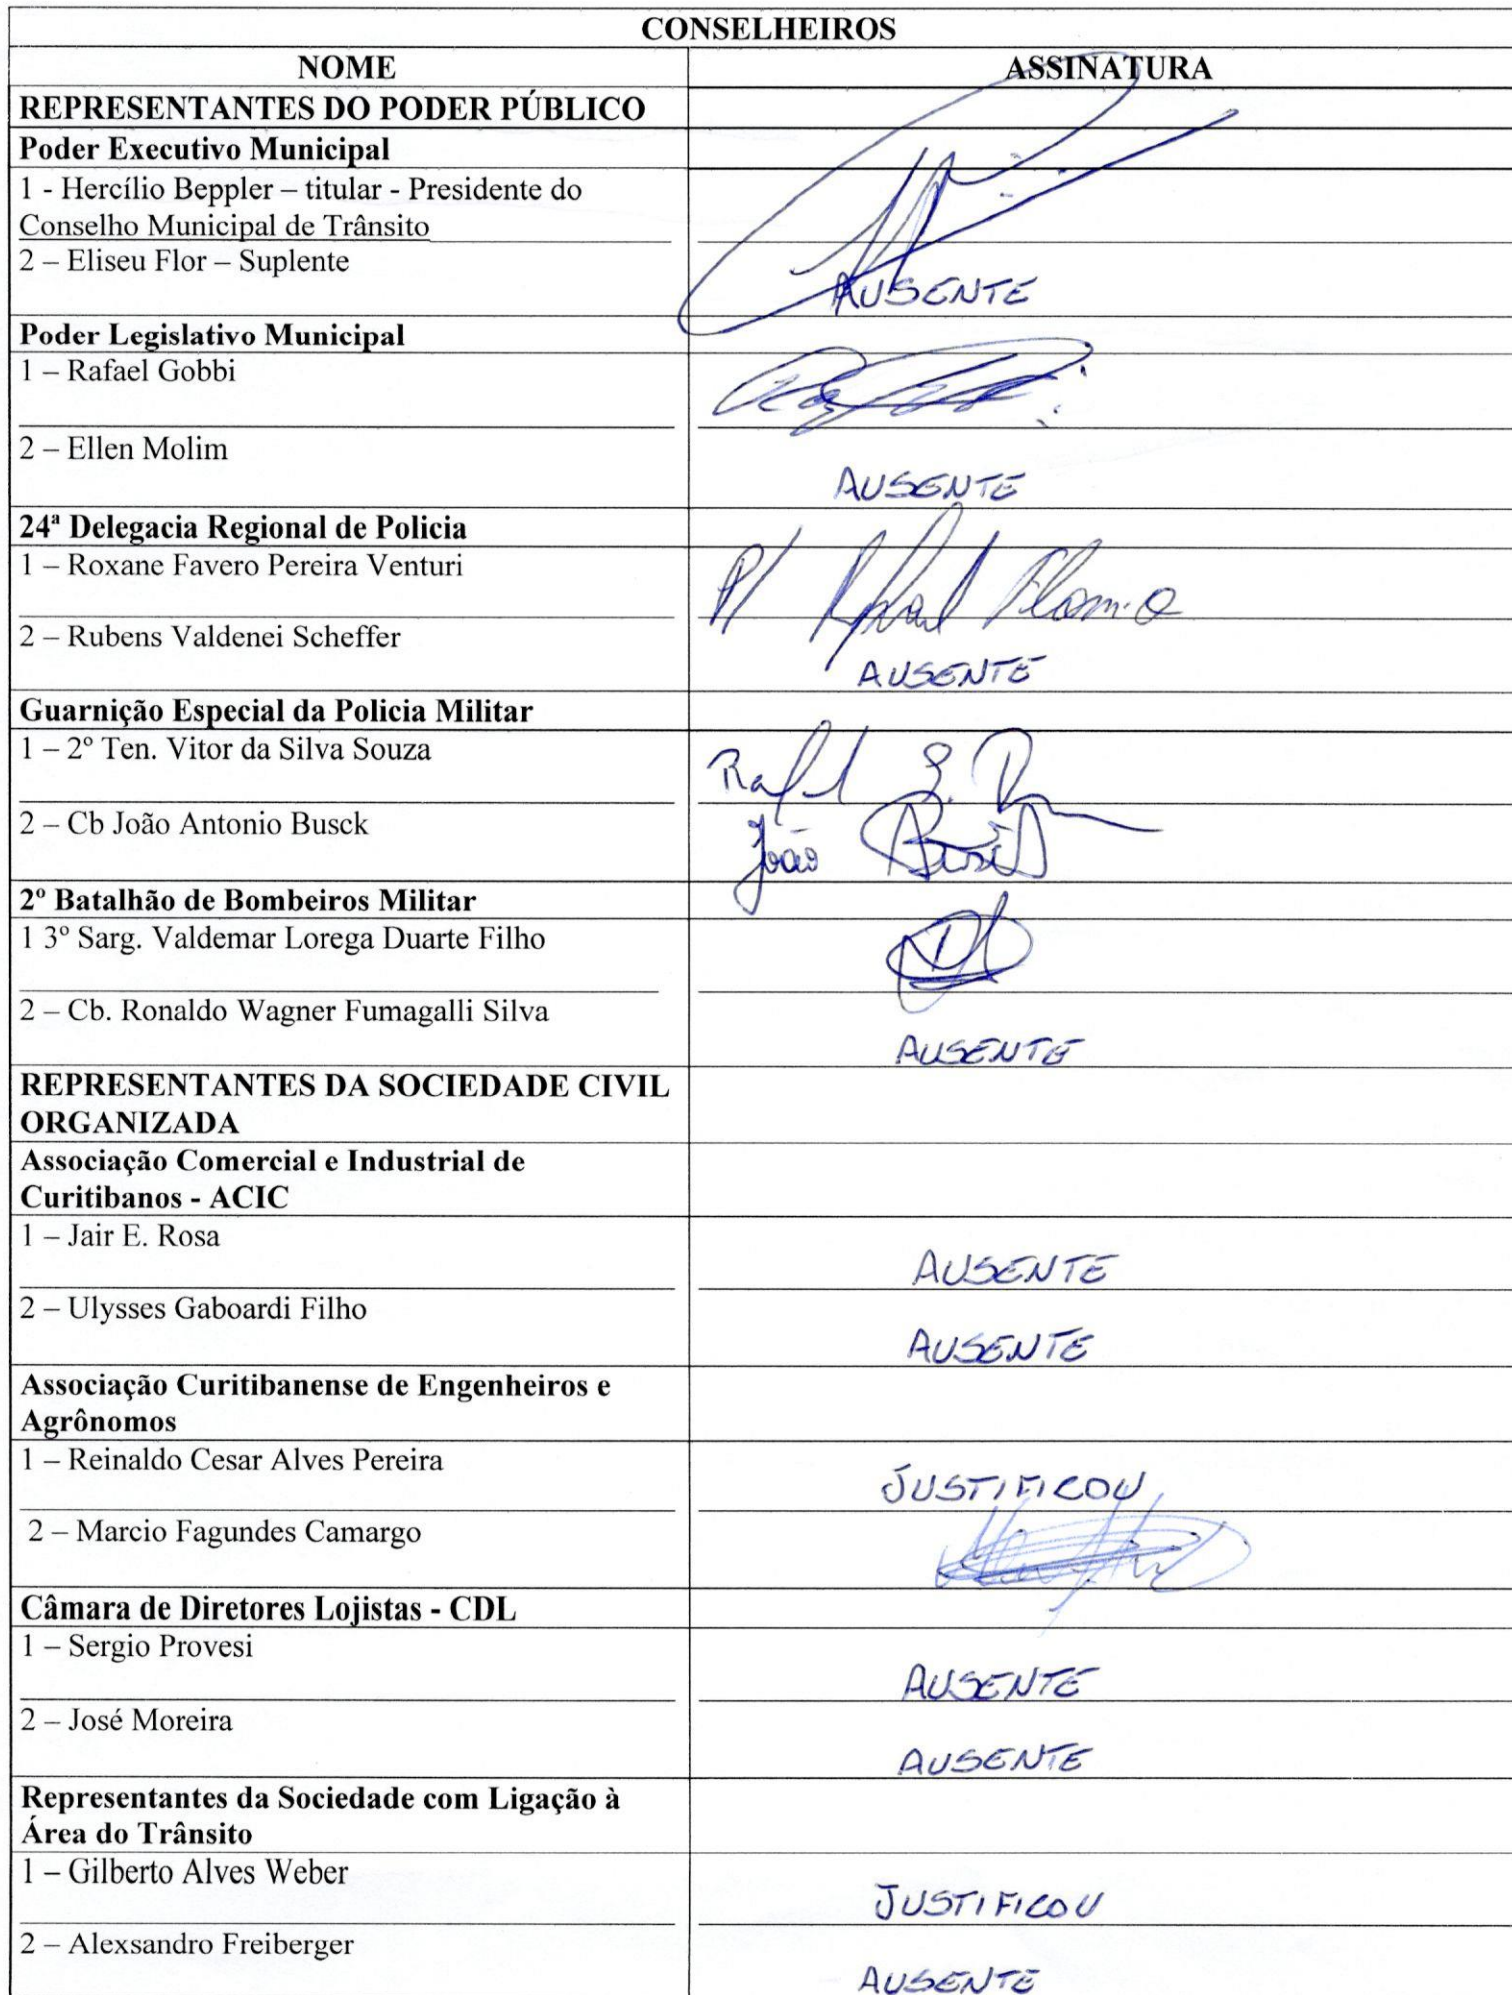 CONSELHEIROS
NOME ASSINATURA
REPRESENTANTES DO PODER PÚBLICO
Poder Executivo Municipal
1 - Hercílio Beppler – titular - Presidente do
Conselho Municipal de Trânsito
2 – Eliseu Flor – Suplente
AUSENTE
Poder Legislativo Municipal
1 – Rafael Gobbi
2 – Ellen Molim
AUSENTE
24ª Delegacia Regional de Policia
1 – Roxane Favero Pereira Venturi
P/
2 – Rubens Valdenei Scheffer
AUSENTE
Guarnição Especial da Policia Militar
1 – 2º Ten. Vitor da Silva Souza
2 – Cb João Antonio Busck
João
2º Batalhão de Bombeiros Militar
1 3º Sarg. Valdemar Lorega Duarte Filho
2 – Cb. Ronaldo Wagner Fumagalli Silva
AUSENTE
REPRESENTANTES DA SOCIEDADE CIVIL
ORGANIZADA
Associação Comercial e Industrial de
Curitibanos - ACIC
1 – Jair E. Rosa
AUSENTE
2 – Ulysses Gaboardi Filho
AUSENTE
Associação Curitibanense de Engenheiros e
Agrônomos
1 – Reinaldo Cesar Alves Pereira
JUSTIFICOU
2 – Marcio Fagundes Camargo
Câmara de Diretores Lojistas - CDL
1 – Sergio Provesi
AUSENTE
2 – José Moreira
AUSENTE
Representantes da Sociedade com Ligação à
Área do Trânsito
1 – Gilberto Alves Weber
JUSTIFICOU
2 – Alexsandro Freiberger
AUSENTE